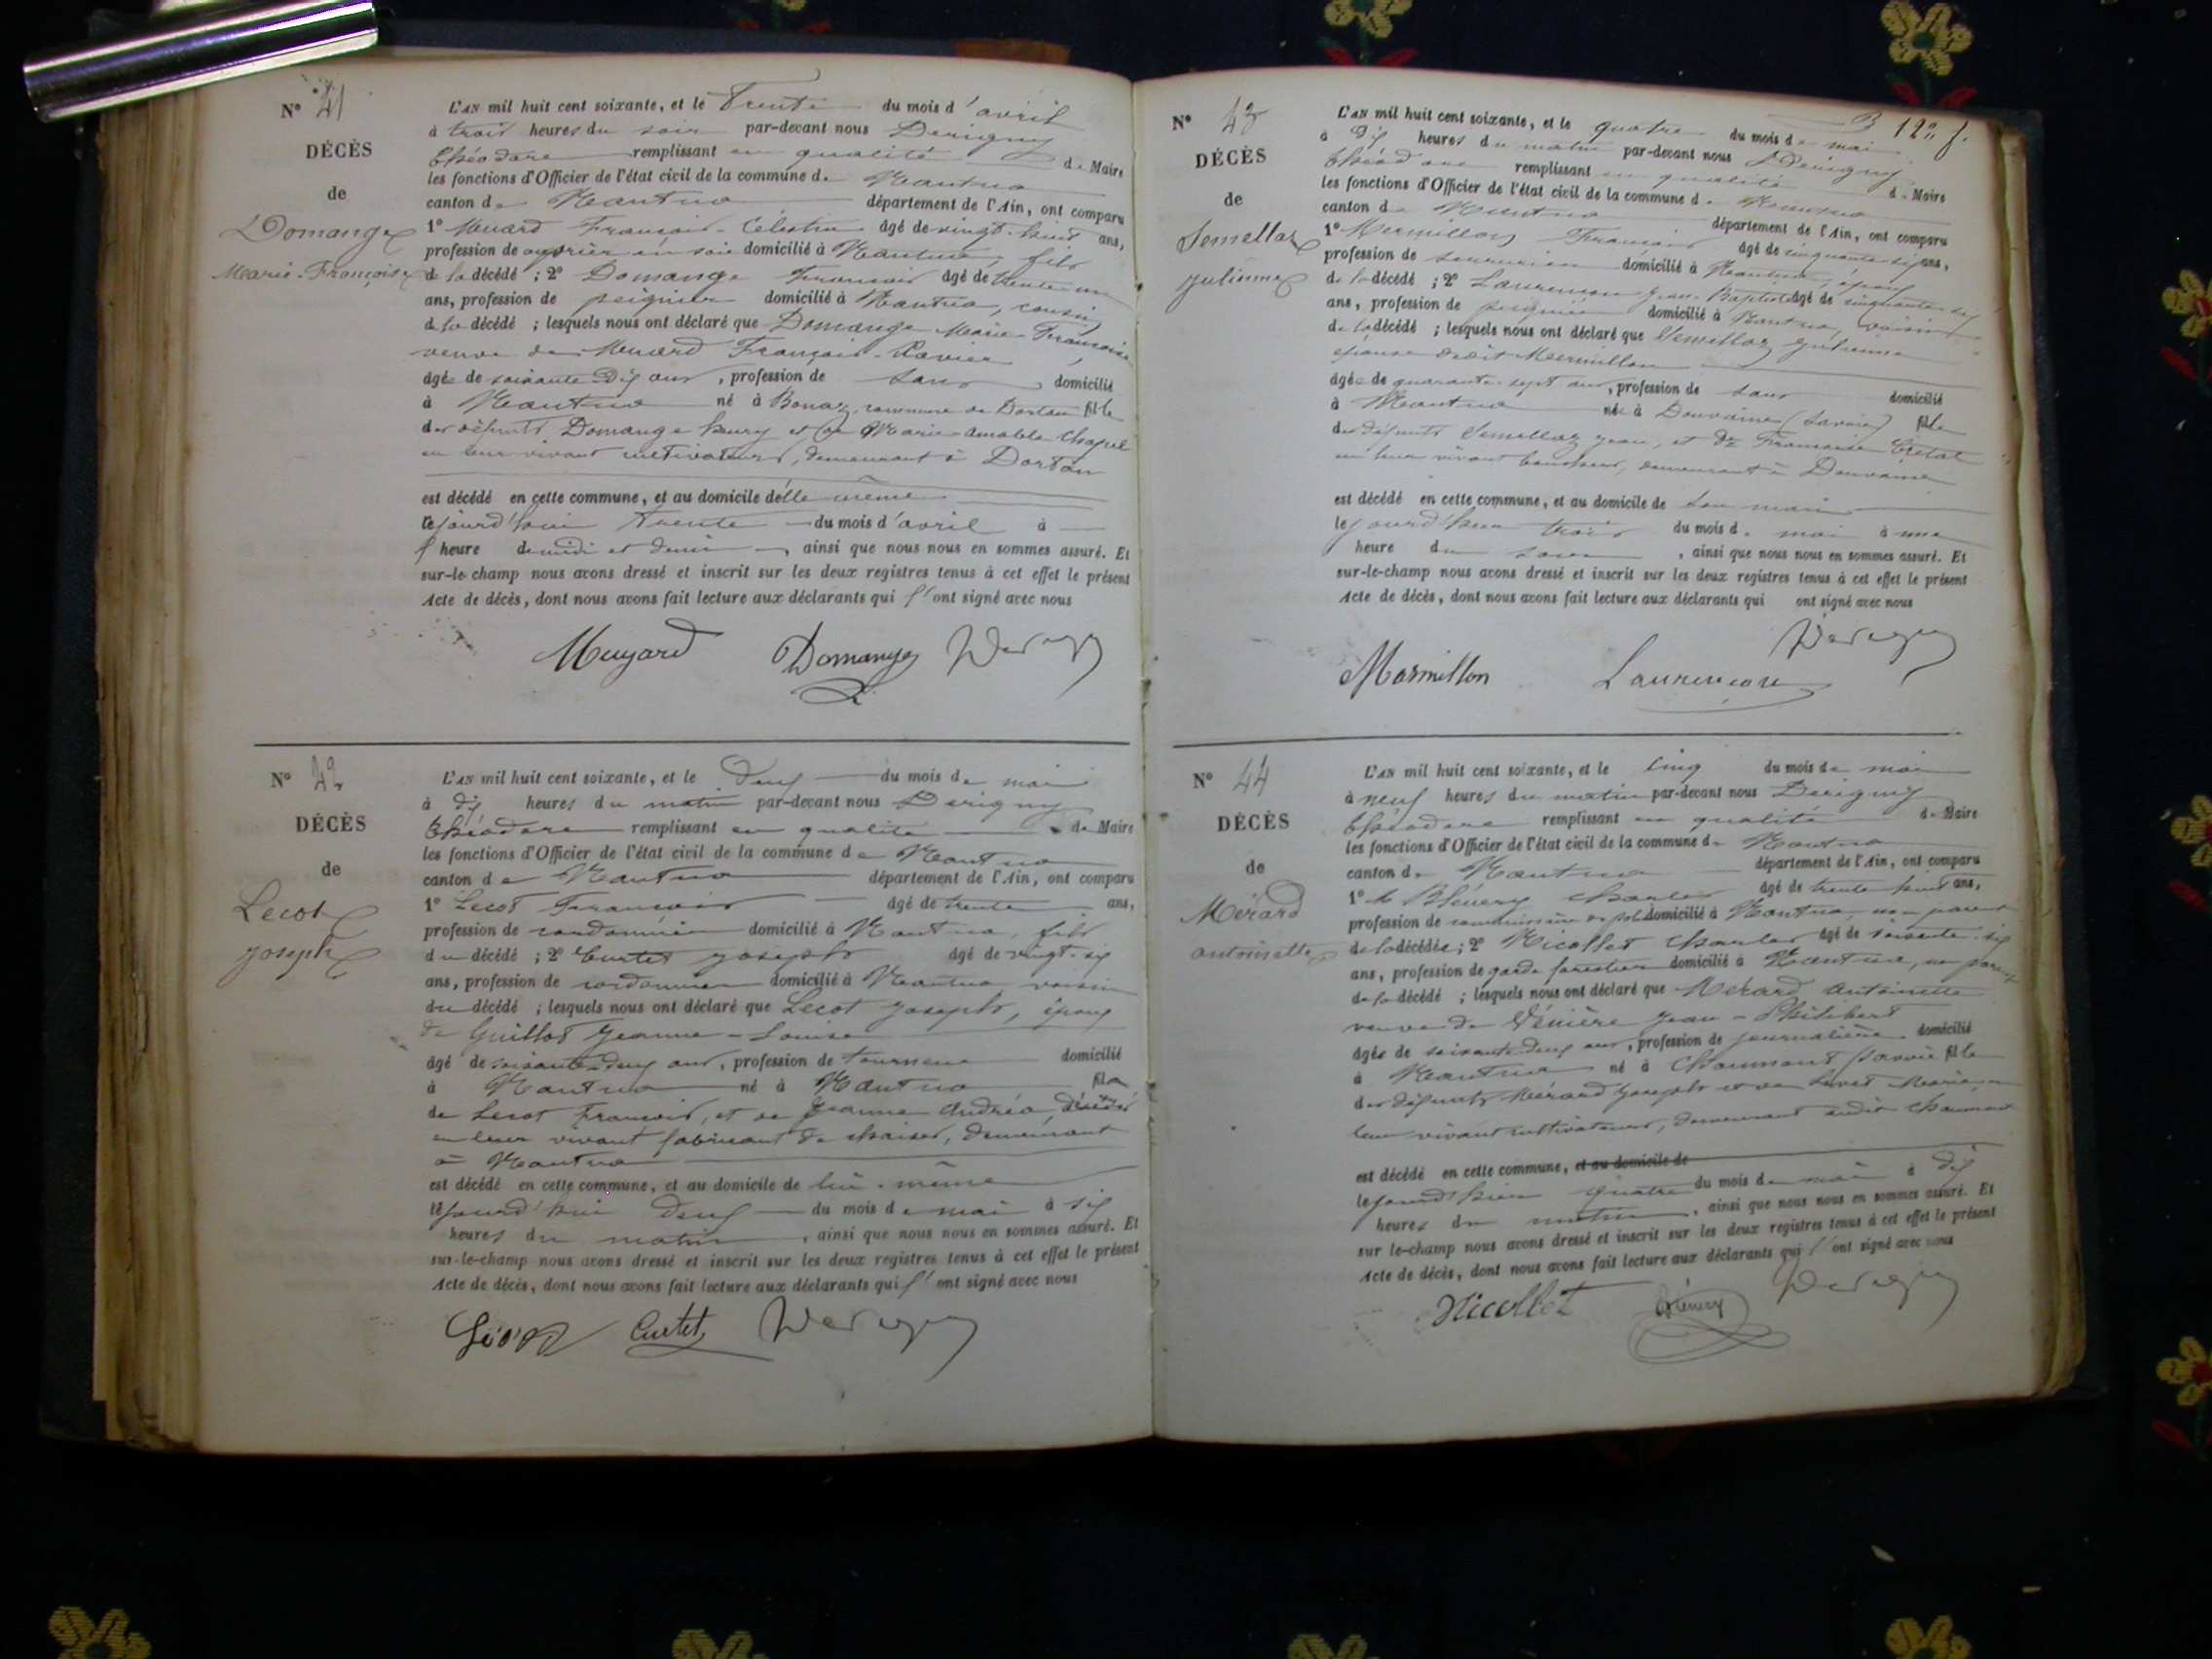 N° 41
DÉCÈS
de
Domange
Marie-Françoise
L'AN mil huit cent soixante, et le Trente du mois d'avril
à trois heures du soir par-devant nous Derigny
Théodore remplissant en qualité de Maire
les fonctions d'Officier de l'état civil de la commune de Nantua
canton de Nantua département de l'Ain, ont comparu
1° François-Célestin âgé de vingt-huit ans,
profession de ouvrier en soie domicilié à Nantua, fils
de la décédé ; 2° Domange François âgé de trente un
ans, profession de peigneur domicilié à Nantua, cousin
de la décédé ; lesquels nous ont déclaré que Domange Marie-Françoise
veuve de François-Xavier
âgée de soixante Dix ans, profession de sans domicilié
à Nantua né à Bonaz, commune de Dortan fille
des défunts Domange henry et de Marie-Amable Chapel
en leur vivant cultivateurs, demeurant à Dortan
est décédé en cette commune, et au domicile d'elle même
lejourd'hui trente du mois d'avril à
heure de midi et demie, ainsi que nous nous en sommes assuré. Et
sur-le-champ nous avons dressé et inscrit sur les deux registres tenus à cet effet le présent
Acte de décès, dont nous avons fait lecture aux déclarants qui l'ont signé avec nous
Muyard Domange
N° 42
DÉCÈS
de
Lecot
joseph
L'AN mil huit cent soixante, et le Deux du mois de mai
à dix heures du matin par-devant nous Derigny
Théodore remplissant en qualité de Maire
les fonctions d'Officier de l'état civil de la commune de Nantua
canton de Nantua département de l'Ain, ont comparu
1° Lecot François âgé de trente ans,
profession de cordonnier domicilié à Nantua, fils
du décédé ; 2° Curtet joseph âgé de vingt-six
ans, profession de cordonnier domicilié à Nantua voisin
du décédé ; lesquels nous ont déclaré que Lecot joseph, époux
de Guillot Jeanne-Louise
âgé de soixante-deux ans, profession de tourneur domicilié
à Nantua né à Nantua fils
de Lecot François, et de Jeanne Andréa, décédés
en leur vivant fabricant de chaises, demeurant
à Nantua
est décédé en cette commune, et au domicile de lui-même
lejourd'hui Deux du mois de mai à six
heures du matin, ainsi que nous nous en sommes assuré. Et
sur-le-champ nous avons dressé et inscrit sur les deux registres tenus à cet effet le présent
Acte de décès, dont nous avons fait lecture aux déclarants qui l'ont signé avec nous
Curtet
N° 43
DÉCÈS
de
Semellaz
julienne
L'AN mil huit cent soixante, et le quatre du mois de mai
à dix heures du matin par-devant nous Derigny
Théodore remplissant en qualité de Maire
les fonctions d'Officier de l'état civil de la commune de Nantua
canton de Nantua département de l'Ain, ont comparu
1° Mermillon François âgé de cinquante-six ans,
profession de serrurier domicilié à Nantua, époux
de la décédé ; 2° Laurenson Jean-Baptiste âgé de cinquante-six
ans, profession de domicilié à Nantua, voisin
de la décédé ; lesquels nous ont déclaré que Semellaz julienne
épouse dudit Mermillon
âgée de quarante-sept ans, profession de sans domicilié
à Nantua née à Douvaine (Savoie) fille
des défunts Semellaz jean, et de Françoise
en leur vivant demeurant à Douvaine
est décédé en cette commune, et au domicile de son mari
lejourd'hier trois du mois de mai à une
heure du soir, ainsi que nous nous en sommes assuré. Et
sur-le-champ nous avons dressé et inscrit sur les deux registres tenus à cet effet le présent
Acte de décès, dont nous avons fait lecture aux déclarants qui ont signé avec nous
Marmillon
N° 44
DÉCÈS
de
Mérard
antoinette
L'AN mil huit cent soixante, et le cinq du mois de mai
à neuf heures du matin par-devant nous Derigny
Théodore remplissant en qualité de Maire
les fonctions d'Officier de l'état civil de la commune de Nantua
canton de Nantua département de l'Ain, ont comparu
1° Charles âgé de trente huit ans,
profession de commissaire de pol. domicilié à Nantua, non parent
de la décédée ; 2° Nicollet Charles âgé de soixante-six
ans, profession de garde forestier domicilié à Nantua, non parent
de la décédé ; lesquels nous ont déclaré que Mérard Antoinette
veuve de jean-Philibert
âgée de soixante-deux ans, profession de journalière domicilié
à Nantua né à Chaumont Savoie fille
des défunts Mérard joseph et de Marie, en
leur vivant cultivateurs, demeurant audit Chaumont
est décédé en cette commune, et au domicile de
lejourd'hier quatre du mois de mai à dix
heures du matin, ainsi que nous nous en sommes assuré. Et
sur le-champ nous avons dressé et inscrit sur les deux registres tenus à cet effet le présent
Acte de décès, dont nous avons fait lecture aux déclarants qui l'ont signé avec nous
Nicollet